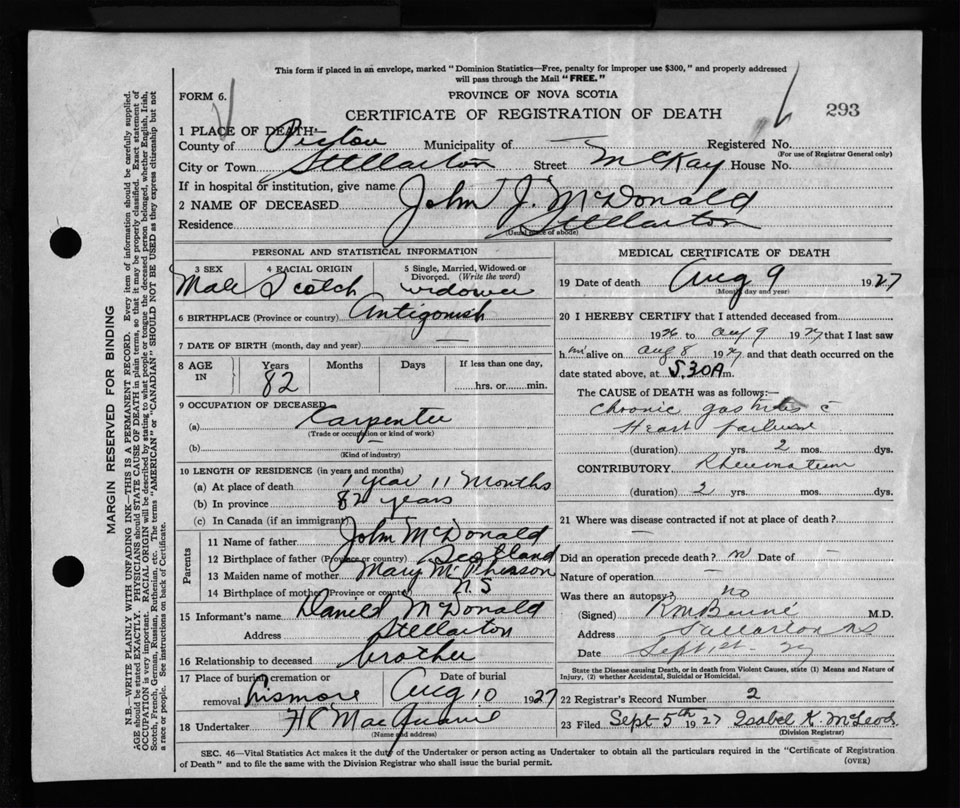 This form if placed in an envelope, marked "Dominion Statistics—Free, penalty for improper use $300," and properly addressed
will pass through the Mail "FREE."
FORM 6.
PROVINCE OF NOVA SCOTIA
CERTIFICATE OF REGISTRATION OF DEATH
293
1 PLACE OF DEATH—
County of Pictou Municipality of — Registered No.
(For use of Registrar General only)
City or Town Stellarton Street McKay House No.
If in hospital or institution, give name
2 NAME OF DECEASED John J. McDonald
Residence Stellarton
(Usual place of abode)
PERSONAL AND STATISTICAL INFORMATION
3 SEX 4 RACIAL ORIGIN 5 Single, Married, Widowed or Divorced. (Write the word)
Male Scotch widower
6 BIRTHPLACE (Province or country) Antigonish
7 DATE OF BIRTH (month, day and year) —
8 AGE IN Years Months Days If less than one day,
82 hrs. or min.
9 OCCUPATION OF DECEASED
(a) Carpenter
(Trade or occupation or kind of work)
(b) —
(Kind of industry)
10 LENGTH OF RESIDENCE (in years and months)
(a) At place of death 1 year 11 Months
(b) In province 82 years
(c) In Canada (if an immigrant)
Parents
11 Name of father John McDonald
12 Birthplace of father (Province or country) Scotland
13 Maiden name of mother Mary McPherson
14 Birthplace of mother (Province or country) N.S
15 Informant's name Daniel McDonald
Address Stellarton
16 Relationship to deceased brother
17 Place of burial, cremation or removal Lismore Date of burial Aug 10 1927
18 Undertaker H C MacQuarrie
(Name and address)
MEDICAL CERTIFICATE OF DEATH
19 Date of death Aug 9 1927
(Month, day and year)
20 I HEREBY CERTIFY that I attended deceased from
1926 to Aug 9 1927 that I last saw
him alive on Aug 8 1927 and that death occurred on the
date stated above, at 5.30 A m.
The CAUSE OF DEATH was as follows:—
Chronic gastritis c̄
Heart failure
(duration) yrs. 2 mos. dys.
CONTRIBUTORY Rheumatism
(duration) 2 yrs. mos. dys.
21 Where was disease contracted if not at place of death?
—
Did an operation precede death? no Date of —
Nature of operation —
Was there an autopsy? no
(Signed) M.D.
Address Stellarton NS
Date Sept 1st 27
State the Disease causing Death, or in death from Violent Causes, state (1) Means and Nature of
Injury, (2) whether Accidental, Suicidal or Homicidal.
22 Registrar's Record Number 2
23 Filed Sept 5th 1927 Isabel K. McLeod
(Division Registrar)
SEC. 46—Vital Statistics Act makes it the duty of the Undertaker or person acting as Undertaker to obtain all the particulars required in the "Certificate of Registration
of Death" and to file the same with the Division Registrar who shall issue the burial permit.
(OVER)
MARGIN RESERVED FOR BINDING
N.B.—WRITE PLAINLY WITH UNFADING INK—THIS IS A PERMANENT RECORD. Every item of information should be carefully supplied.
AGE should be stated EXACTLY. PHYSICIANS should STATE CAUSE OF DEATH in plain terms, so that it may be properly classified. Exact statement of
OCCUPATION is very important. RACIAL ORIGIN will be described by stating to what people or tongue the deceased person belonged, whether English, Irish,
Scotch, French, German, Russian, Ruthenian, etc. The terms "AMERICAN" or "CANADIAN" SHOULD NOT BE USED as they express citizenship but not
a race or people. See instructions on back of Certificate.